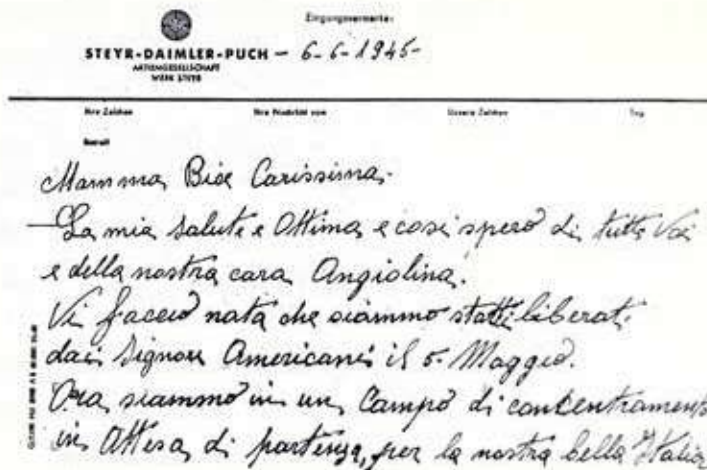 Eingangsvermerke:
STEYR-DAIMLER-PUCH — 6-6-1945-
AKTIENGESELLSCHAFT
WERK STEYR
Ihre Zeichen Ihre Nachricht vom Unsere Zeichen Tag
Betreff
Mamma Bice Carissima.
La mia salute e Ottima e cosi spero di tutti Voi
e della nostra cara Angiolina.
Vi faccio nata che siammo statti liberati
dai Signori Americani il 5. Maggio.
Ora siammo in un Campo di concentramento
in Attesa di partenza, per la nostra bella Italia